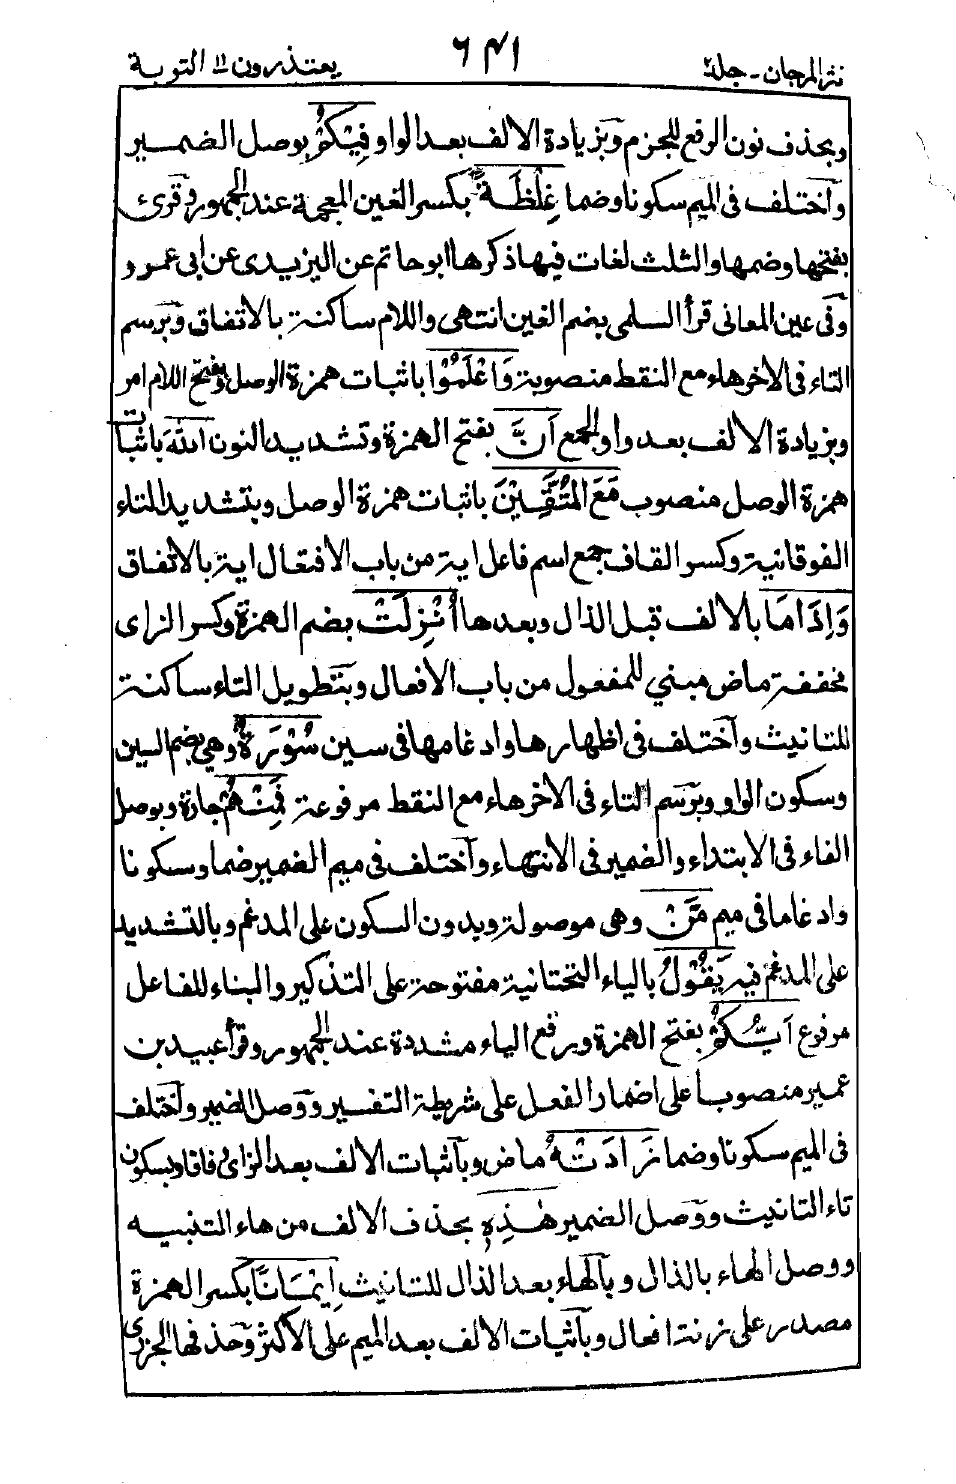 نثر المرجان - جلد ٢ ٦٤١ يعتذرون ١١ التوبة
وبحذف نون الرفع للجزم وبزيادة الالف بعد الواو فِيْكُمْ بوصل الضمير
وآختلف في الميم سكونا وضما غِلْظَةً بكسر الغين المعجمة عند الجمهور وقرئ
بفتحها وضمها والثلث لغات فيها ذكرها ابو حاتم عن اليزيدي عن ابي عمرو
وفي عين المعاني قرأ السلمي بضم الغين انتهى واللام ساكنة بالاتفاق وبرسم
التاء في الاخر هاء مع النقط منصوبة وَاعْلَمُوْا باثبات همزة الوصل وبفتح اللام امر
وبزيادة الالف بعد واو الجمع اَنَّ بفتح الهمزة وتشديد النون اللّٰهَ باثبات
همزة الوصل منصوب مَعَ الْمُتَّقِيْنَ باثبات همزة الوصل وبتشديد التاء
الفوقانية وكسر القاف جمع اسم فاعل اية من باب الافتعال اية بالاتفاق
وَاِذَا مَا بالالف قبل الذال وبعدها اُنْزِلَتْ بضم الهمزة وكسر الزاي
مخففة ماض مبني للمفعول من باب الافعال وبتطويل التاء ساكنة
للتانيث وآختلف في اظهارها وادغامها في سين سُوْرَةٌ وهي بضم السين
وسكون الواو وبرسم التاء في الاخر هاء مع النقط مرفوعة فَمِنْهُمْ جارة وبوصل
الفاء في الابتداء والضمير في الانتهاء وآختلف في ميم الضمير ضما وسكونا
وادغاما في ميم مَّنْ وهي موصولة وبدون السكون على المدغم وبالتشديد
على المدغم فيه يَقُوْلُ بالياء التحتانية مفتوحة على التذكير والبناء للفاعل
مرفوع اَيُّكُمْ بفتح الهمزة وبرفع الياء مشددة عند الجمهور وقرأ عبيد بن
عمير منصوبا على اضمار الفعل على شريطة التفسير ووصل الضمير واختلف
في الميم سكونا وضما زَادَتْهُ ماض وبآثبات الالف بعد الزاي وفاقا وبسكون
تاء التانيث ووصل الضمير هٰذِهٖ بحذف الالف من هاء التنبيه
ووصل الهاء بالذال وبالهاء بعد الذال للتانيث اِيْمَانًا بكسر الهمزة
مصدر على زنة افعال وبآثبات الالف بعد الميم على الاكثر وحذفها الجزري